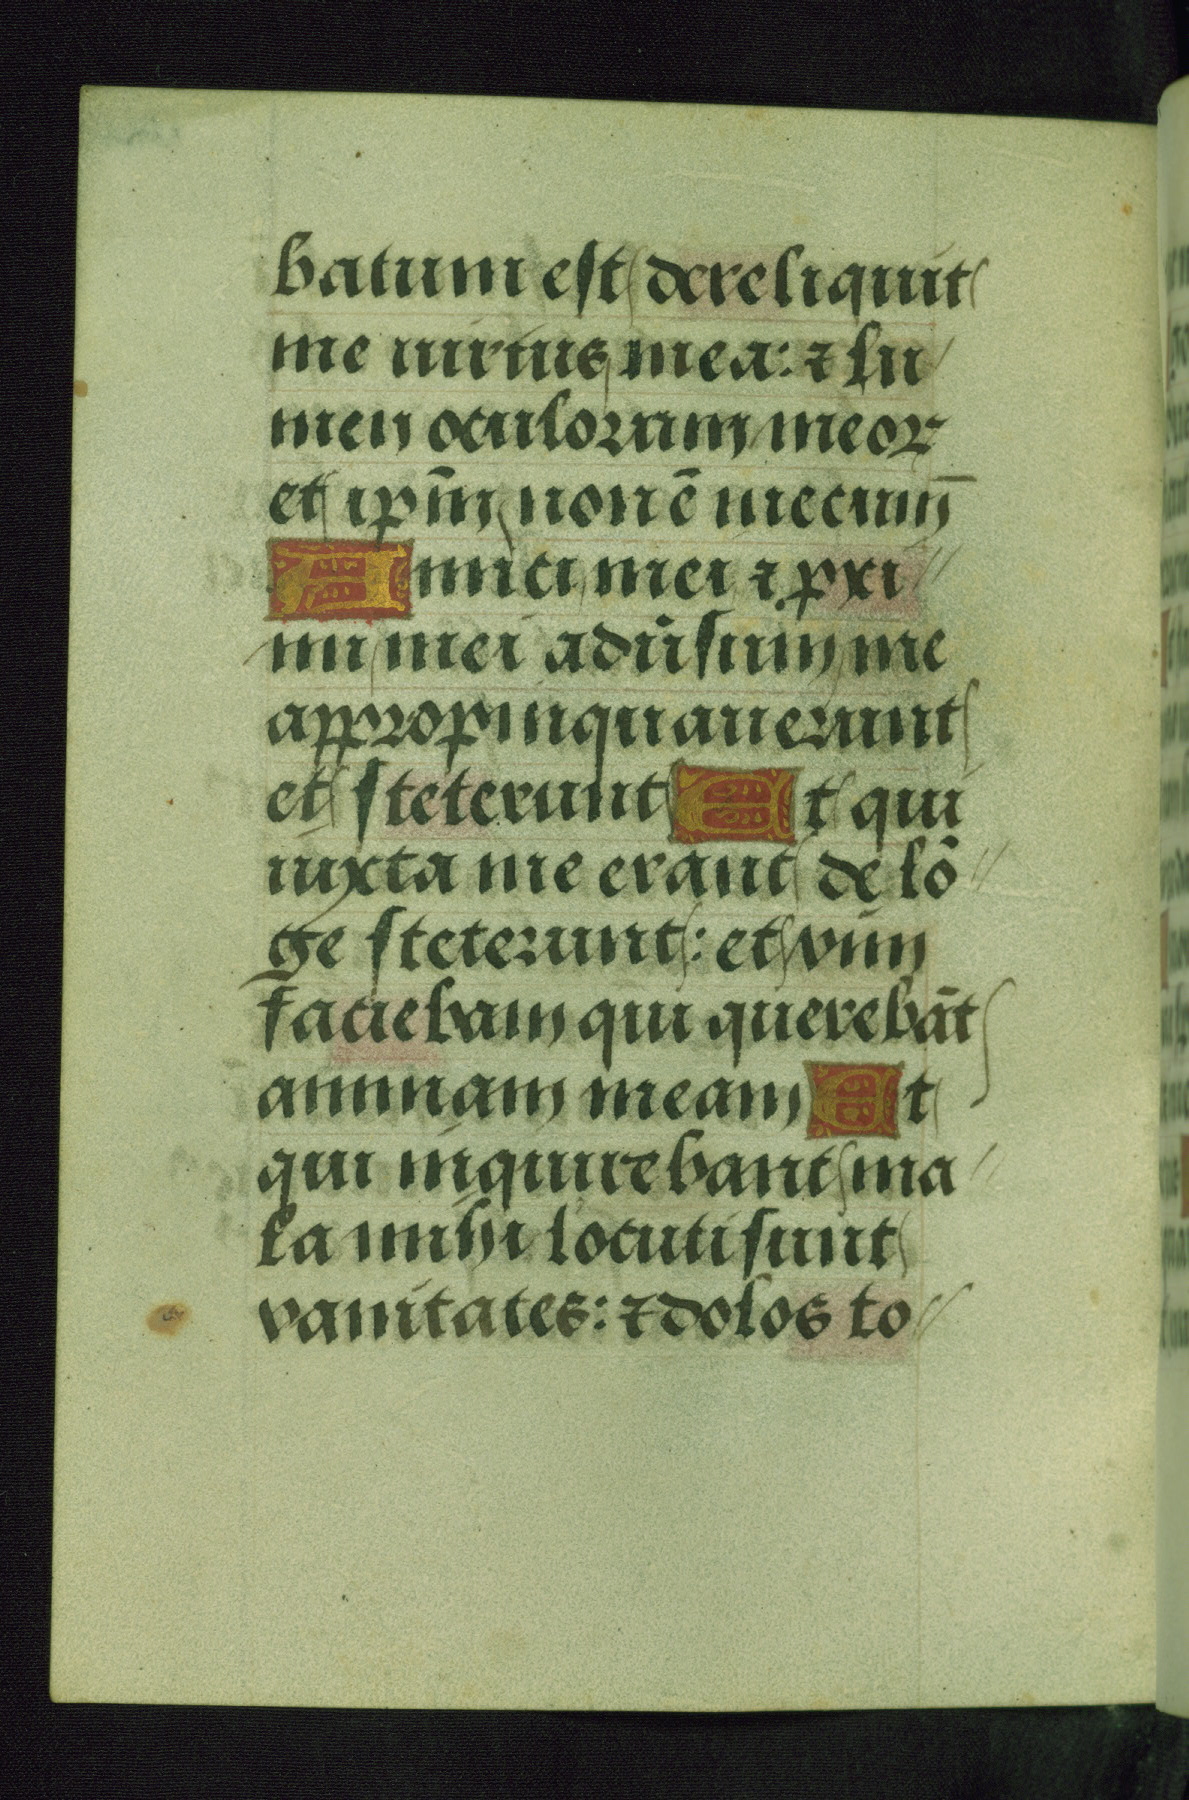 batum est dereliquit
me uirtus mea: ⁊ lu
men oculorum meoꝝ
et ip̄m non ē mecum
Amici mei ⁊ ꝓxi
mi mei adūsum me
appropinquauerunt
et steterunt Et qui
iuxta me erant de lō
ge steterunt: et vim
faciebam qui querebāt
animam meam Et
qui inquirebant ma
la mihi locuti sunt
vanitates: ⁊ dolos to